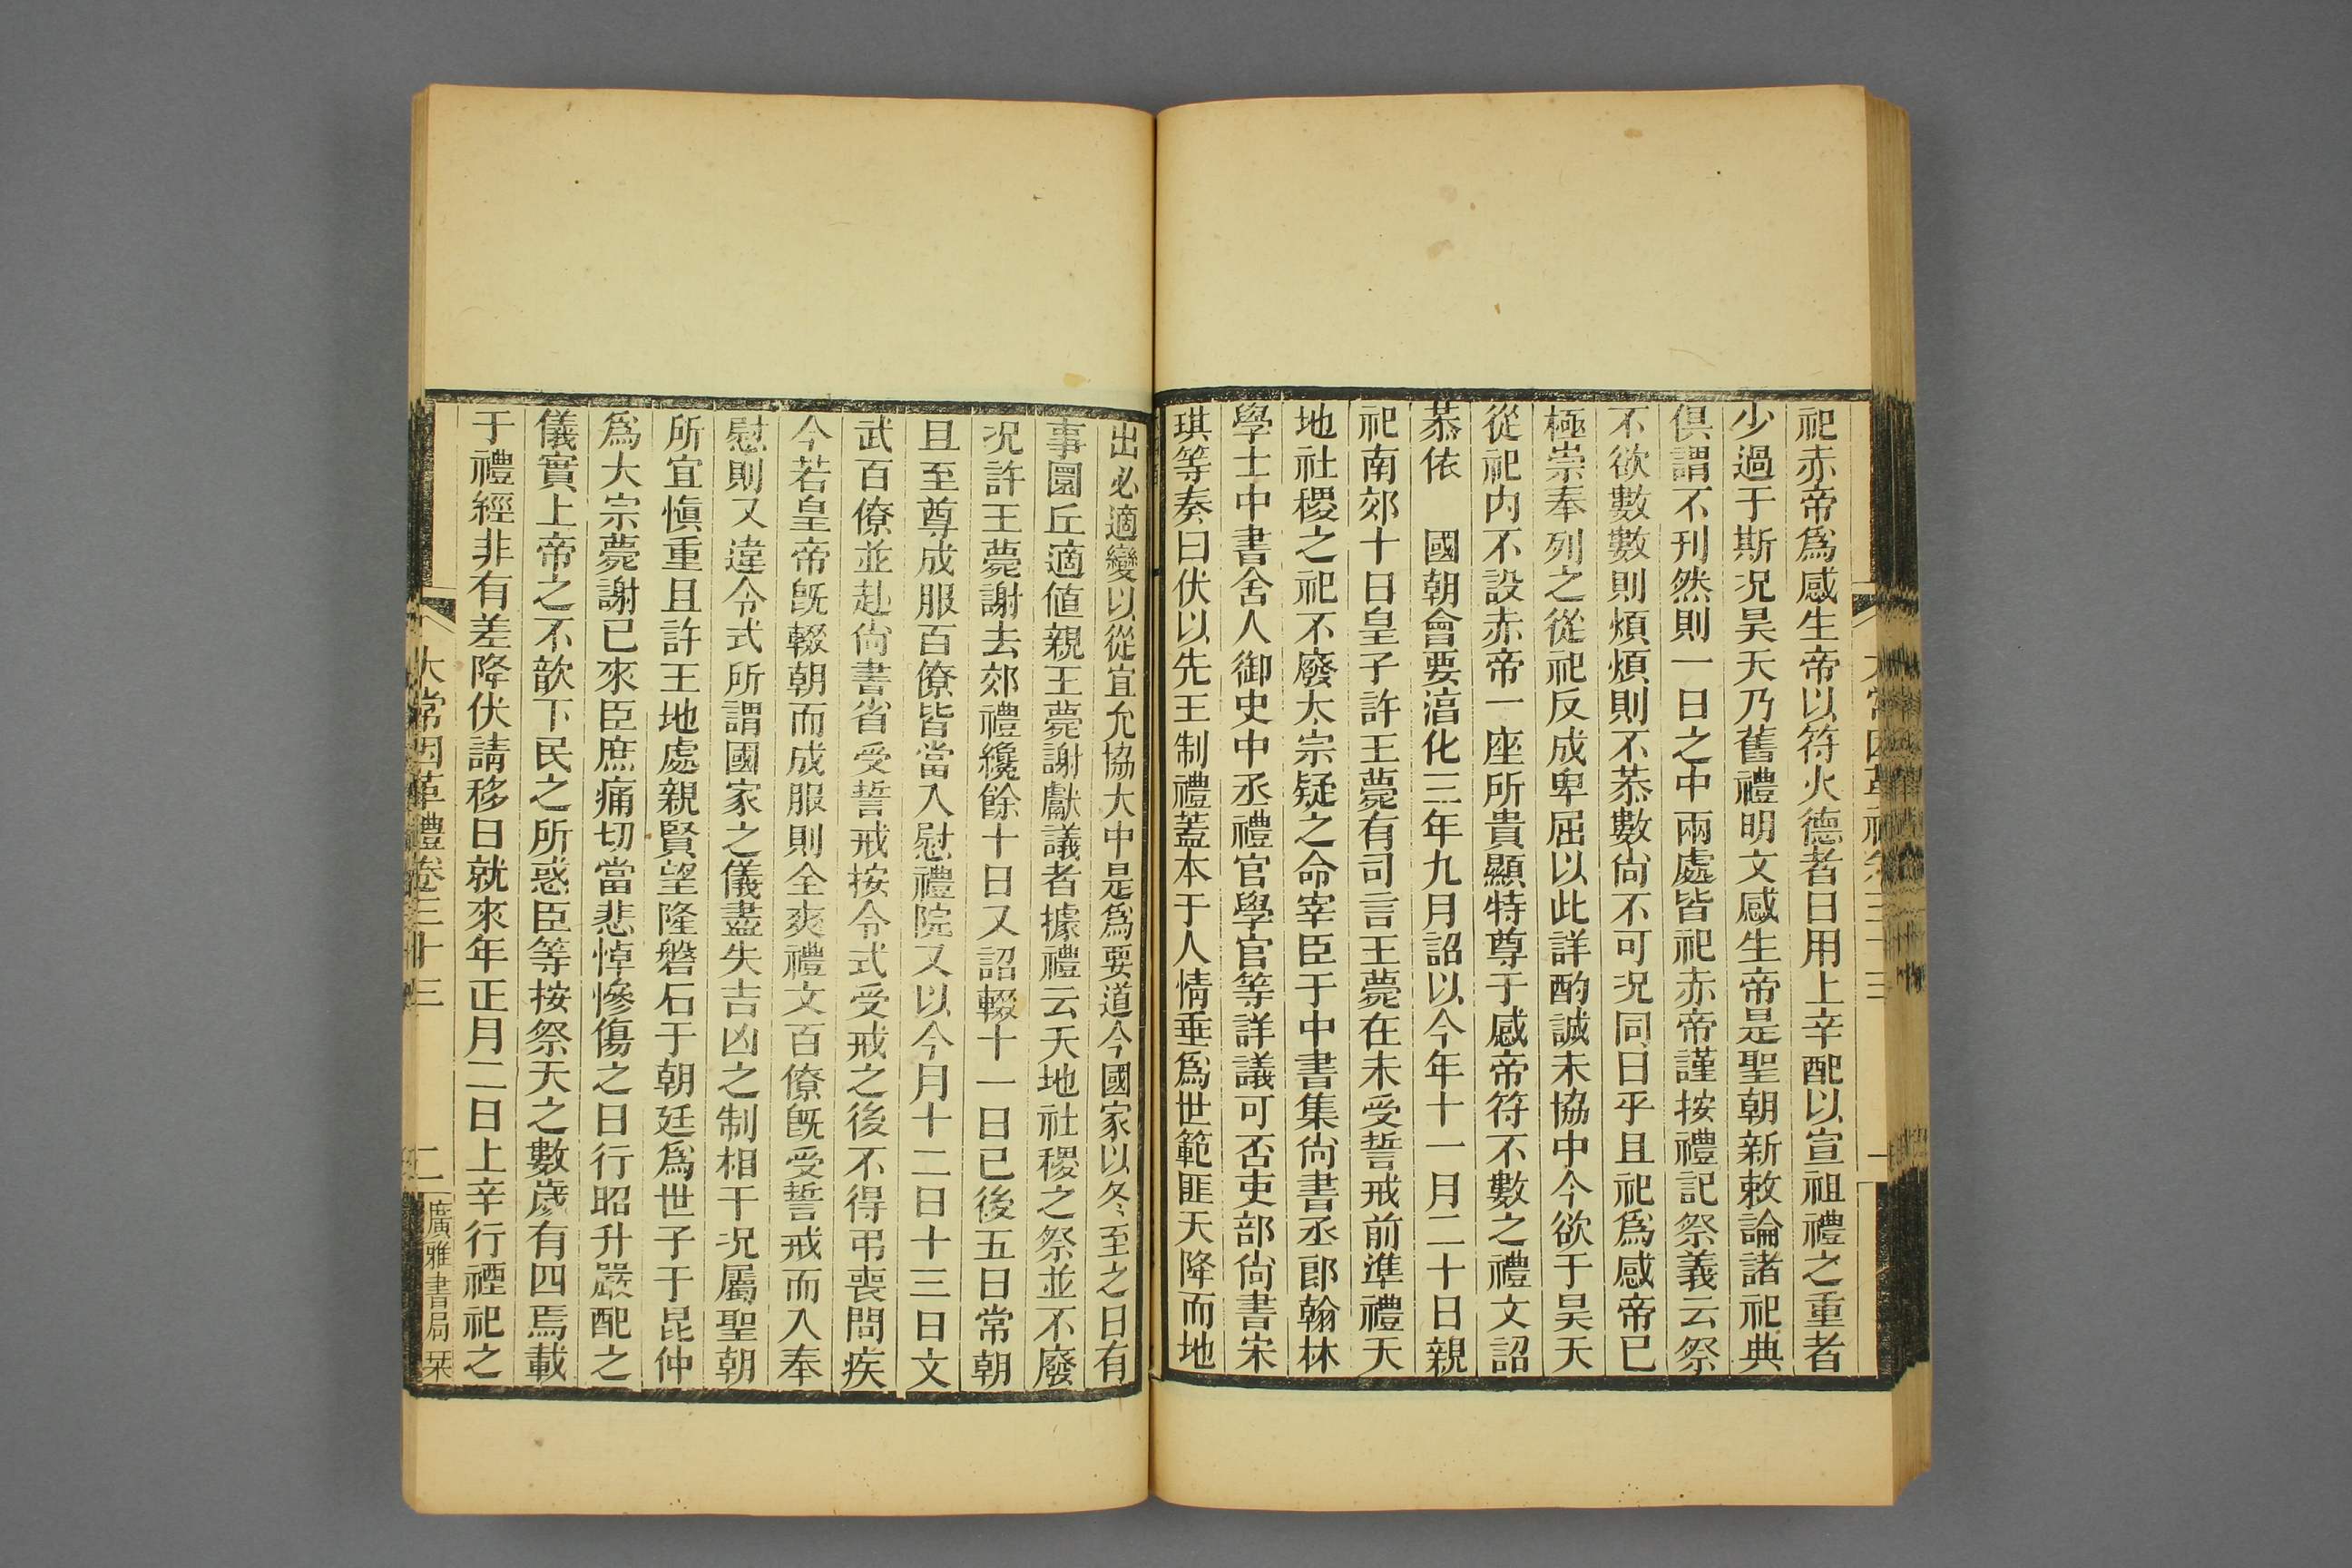 祀赤帝爲感生帝以符火德者日用上辛配以宣祖禮之重者
少過于斯况昊天乃舊禮明文感生帝是聖朝新敕論諸祀典
俱謂不刊然則一日之中兩處皆祀赤帝謹按禮記祭義云祭
不欲數數則煩煩則不恭數尙不可况同日乎且祀爲感帝已
極崇奉列之從祀反成卑屈以此詳酌誠未協中今欲于昊天
從祀內不設赤帝一座所貴顯特尊于感帝符不數之禮文詔
恭依　國朝會要淳化三年九月詔以今年十一月二十日親
祀南郊十日皇子許王薨有司言王薨在未受誓戒前準禮天
地社稷之祀不廢太宗疑之命宰臣于中書集尙書丞郎翰林
學士中書舍人御史中丞禮官學官等詳議可否吏部尙書宋
琪等奏曰伏以先王制禮蓋本于人情垂爲世範匪天降而地
出必適變以從宜允協大中是爲要道今國家以冬至之日有
事圜丘適値親王薨謝獻議者據禮云天地社稷之祭並不廢
况許王薨謝去郊禮纔餘十日又詔輟十一日已後五日常朝
且至尊成服百僚皆當入慰禮院又以今月十二日十三日文
武百僚並赴尙書省受誓戒按令式受戒之後不得弔喪問疾
今若皇帝旣輟朝而成服則全爽禮文百僚旣受誓戒而入奉
慰則又違令式所謂國家之儀盡失吉凶之制相干况屬聖朝
所宜愼重且許王地處親賢望隆磐石于朝廷爲世子于昆仲
爲大宗薨謝已來臣庶痛切當悲悼慘傷之日行昭升嚴配之
儀實上帝之不歆下民之所惑臣等按祭天之數歲有四焉載
于禮經非有差降伏請移日就來年正月二日上辛行禋祀之
太常因革禮卷三十三　二　廣雅書局栞